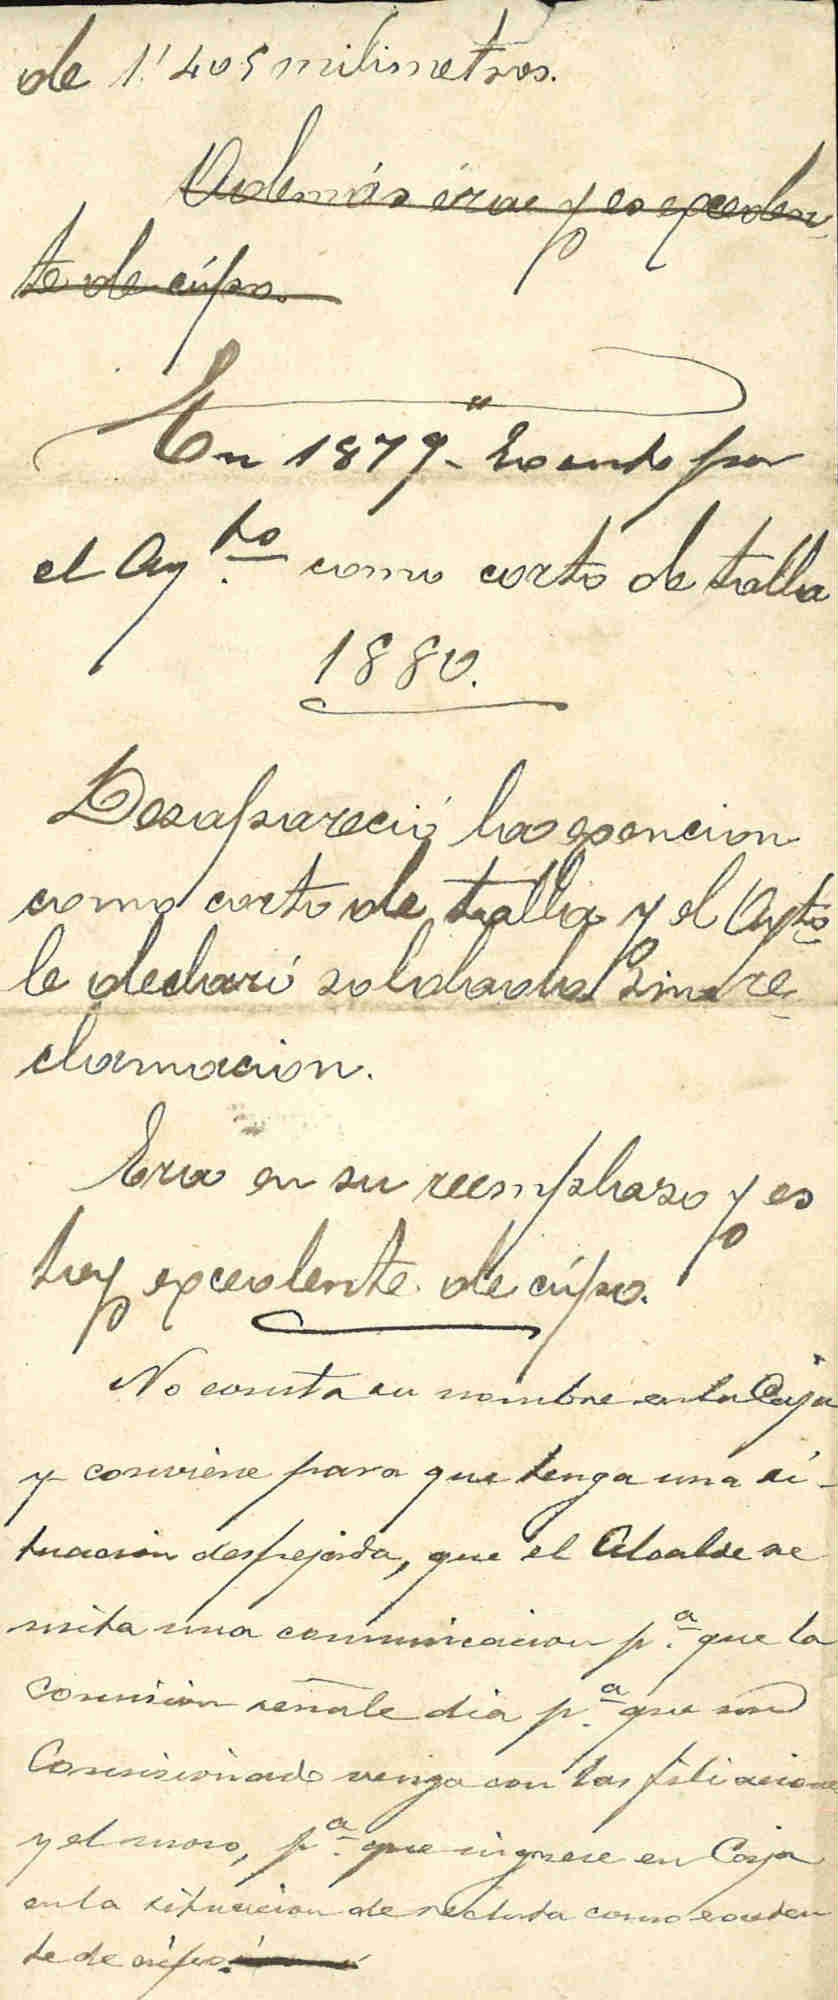 de 1'405 milimetros.
Además érae y es exceden-
te de cúpo.
En 1879.- Exento por
el Ayto. como corto de talla
1880.
Desapareció la exencion
como corto de talla y el Ayto
le declaró soldado sin re-
clamacion.
Era en su reemplazo y es
hoy excedente de cúpo.
No consta su nombre en la Caja
y conviene para que tenga una si-
tuacion despejada, que el Alcalde re
mita una comunicacion p.a que la
Comision señale dia p.a que un
Comisionado venga con las filiaciones
y el mozo, p.a que ingrese en Caja
en la situacion de recluta como exceden
te de cúpo.